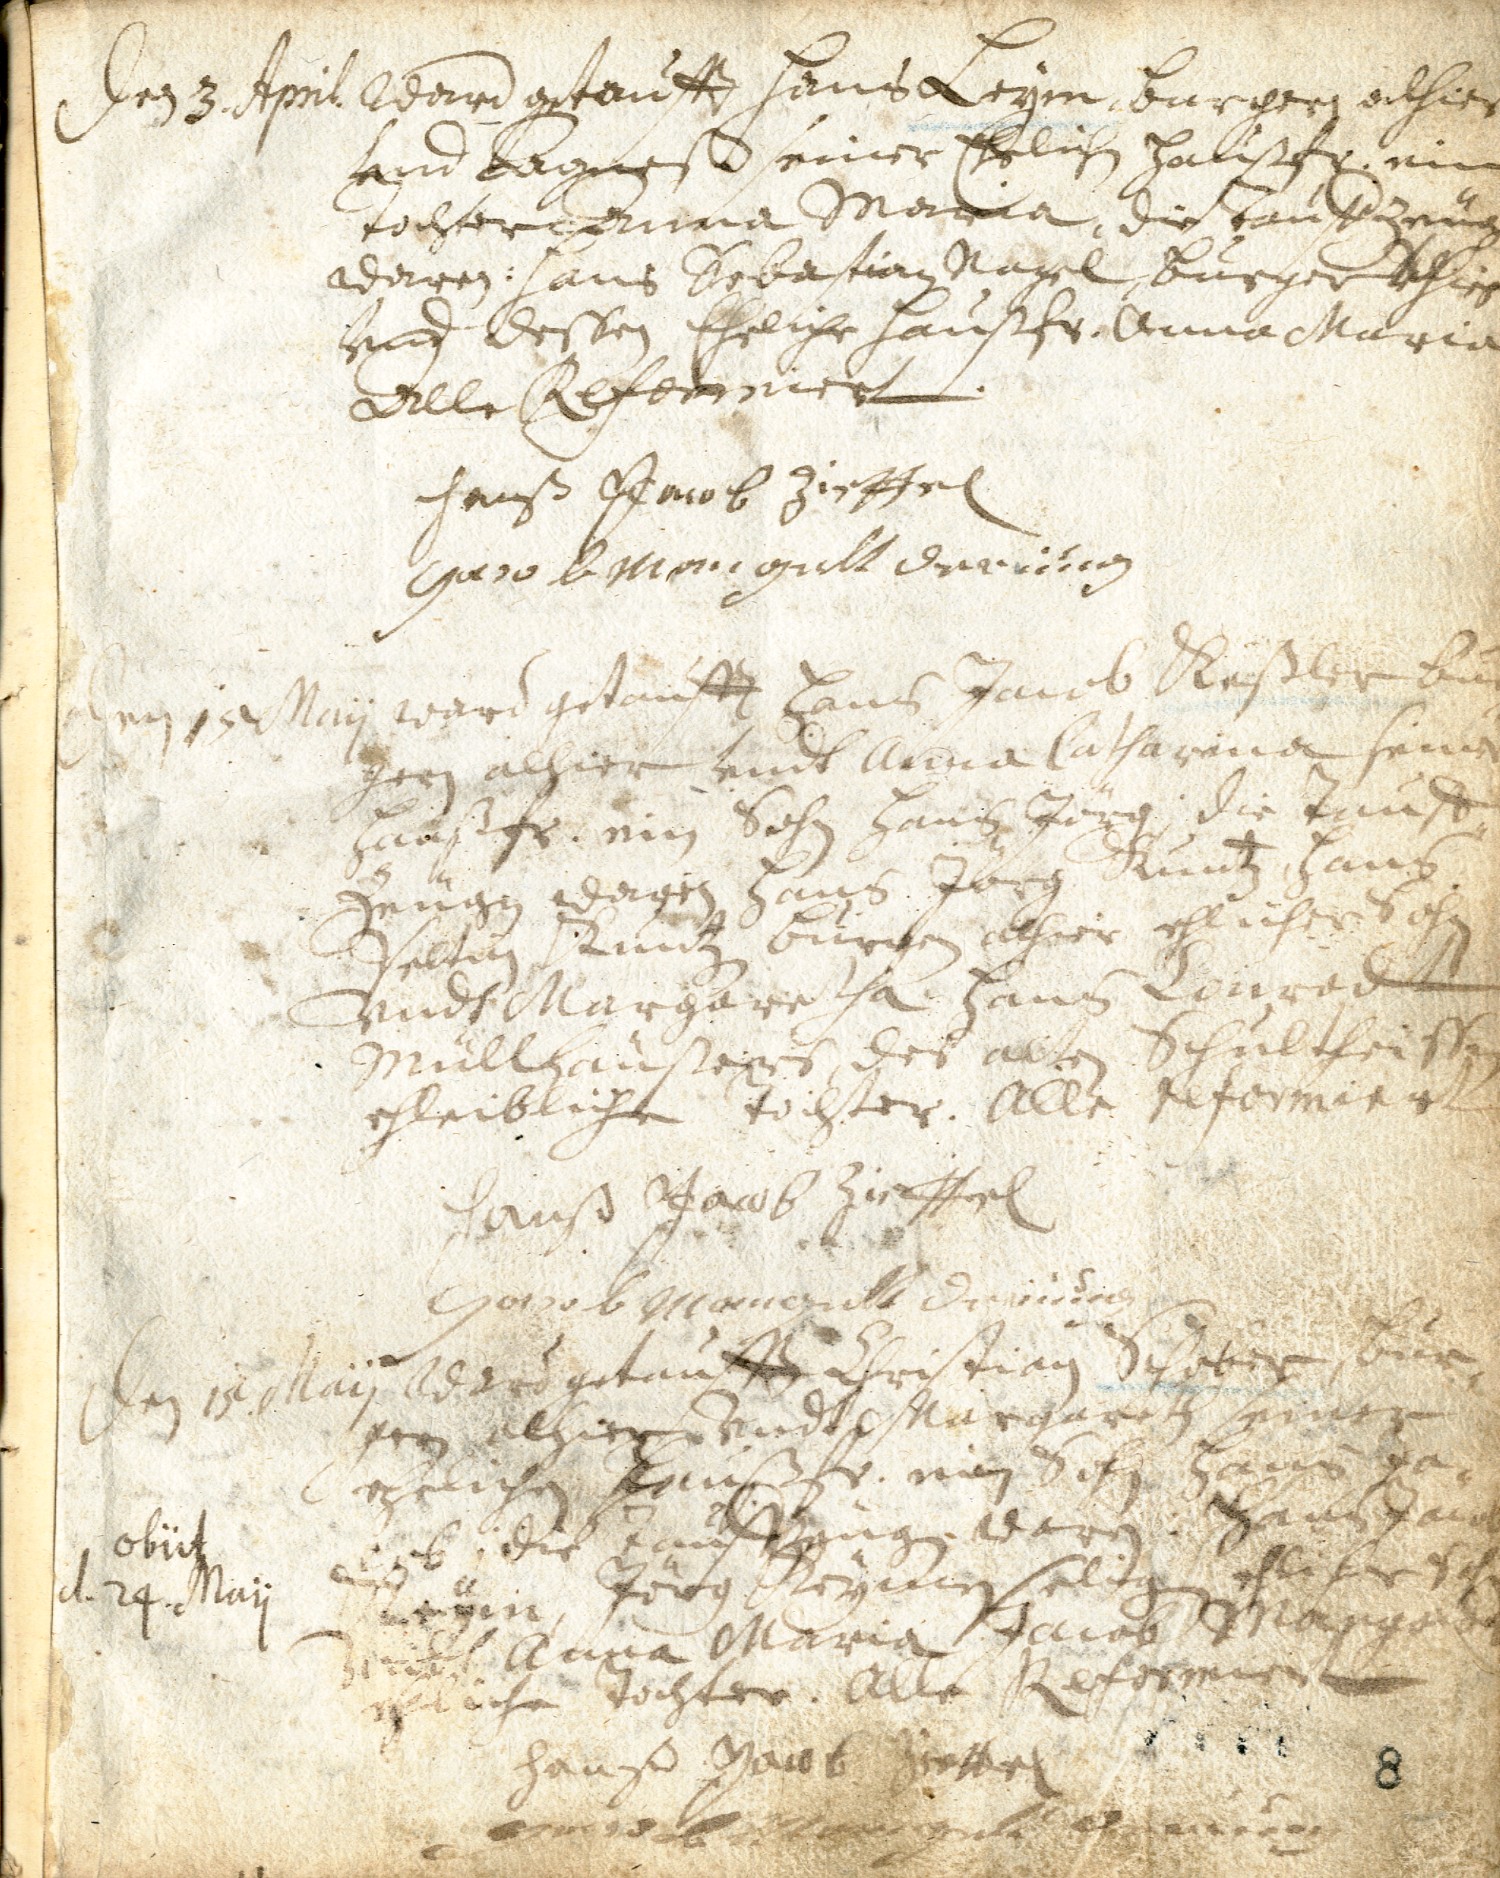 Den 3. April. Ward getaufft Hans Leÿm, burgern alhier
und Agneß seiner Ehelichen Haußfr. ein
tochter Anna Maria, die tauffzeüg
waren: Hans Sebastian Nagel, burger alhier
und dessen Eheliche Haußfr. Anna Maria
Alle Reformiert.
Hanß Jacob Zieffel
Jacob Mangolt der iung
Den 15 Maÿ ward getaufft Hans Jacob Keßler bur
gern alhier undt Anna Catharina seiner
Haußfr. ein Sohn Hans Jörg, die Tauff
Zeügen waren Hans Jörg Kuntz, Hans
Veltin Kuntz burgern alhier ehlicher Sohn
undt Margaretha Hans Conradt
Müllhaüsers des alten Schultheissen
ehleibliche tochter. Alle reformiert
Hanß Jacob Zieffel
Jacob Mangolt der iung
Den 15. Maÿ Ward getaufft Christian Schober, bur
gern alhier undt Margareth seiner
ehelichen Haußfr. ein Sohn Hans Ja-
cob, die Tauffzeügen waren: Hans Jacob
obiit
d. 24. Maÿ
Leÿm, Jörg Leÿmen selig ehlicher Sohn
undt Anna Maria Jacob Mangolts
ehliche tochter. Alle Reformiert
Hanß Jacob Zieffel
8